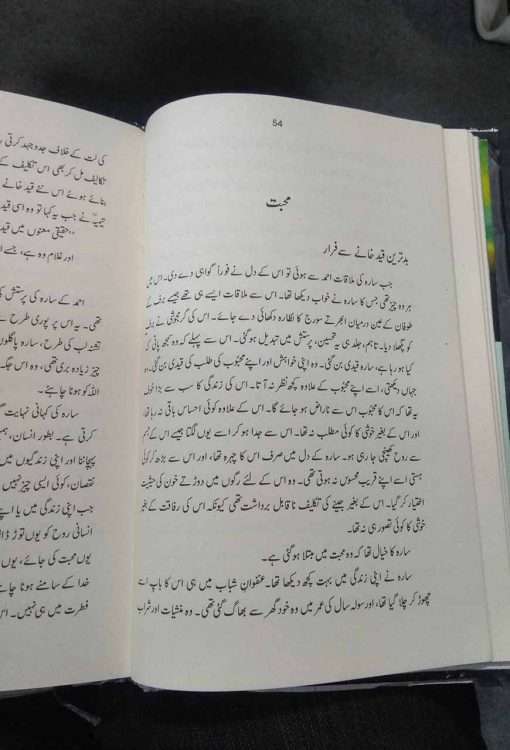 54
محبت
بدترین قید خانے سے فرار
جب سارہ کی ملاقات احمد سے ہوئی تو اس کے دل نے فوراً گواہی دے دی۔ اس میں
ہر وہ چیز تھی جس کا سارہ نے خواب دیکھا تھا۔ اس سے ملاقات ایسے ہی تھے جیسے برف کے
طوفان کے عین درمیان ابھرتے سورج کا نظارہ دکھائی دے جائے۔ اس کی گرمجوشی نے برف
کو پگھلا دیا۔ تاہم، جلد ہی یہ تحسین، پرستش میں تبدیل ہو گئی۔ اس سے پہلے کہ وہ سمجھ پاتی کہ
کیا ہو رہا ہے، سارہ قیدی بن گئی۔ وہ اپنی خواہش اور اپنے محبوب کی طلب کی قیدی بن گئی۔
جہاں دیکھتی، اسے اپنے محبوب کے علاوہ کچھ نظر نہ آتا۔ اس کی زندگی کا سب سے بڑا خوف
یہ تھا کہ اس کا محبوب اس سے ناراض ہو جائے گا۔ اس کے علاوہ کوئی احساس باقی نہ رہا تھا،
اور اس کے بغیر خوشی کا کوئی مطلب نہ تھا۔ اس سے جدا ہو کر اسے یوں لگتا جیسے اس کے جسم
سے روح کھینچی جا رہی ہو۔ سارہ کے دل میں صرف اس کا چہرہ تھا، اور اس سے بڑھ کر کوئی
ہستی اسے اپنے قریب محسوس نہ ہوتی تھی۔ وہ اس کے لئے رگوں میں دوڑتے خون کی حیثیت
اختیار کر گیا۔ اس کے بغیر جینے کی تکلیف ناقابل برداشت تھی کیونکہ اس کی رفاقت کے بغیر
خوشی کا کوئی تصور ہی نہ تھا۔
سارہ کا خیال تھا کہ وہ محبت میں مبتلا ہو گئی ہے۔
سارہ نے اپنی زندگی میں بہت کچھ دیکھا تھا۔ عنفوانِ شباب میں ہی اس کا باپ اسے
چھوڑ کر چلا گیا تھا، اور سولہ سال کی عمر میں وہ خود گھر سے بھاگ گئی تھی۔ وہ منشیات اور شراب
کی لت کے خلاف جدوجہد کرتی
تکالیف مل کر بھی اس تکلیف کے
بنائے ہوئے اس نئے قید خانے
تیمیہؒ نے جب یہ کہا تو وہ اسی قید
"حقیقی معنوں میں قید
اور غلام وہ ہے، جسے
احمد کے سارہ کی پرستش
تھی۔ یہ اس پر پوری طرح
تشنہ لب کی طرح، سارہ پاگلوں
چیز زیادہ بری تھی، وہ اس جگہ
اللہ کو ہونا چاہئے۔
سارہ کی کہانی نہایت
کرتی ہے۔ بطور انسان، ہم
پہچاننا اور اپنی زندگیوں میں
نقصان، کوئی ایسی چیز نہیں
جو آپ کی زندگی میں ہو یا اپنے
انسانی روح کو یوں توڑ ڈالے
یوں محبت کی جائے،
خدا کے سامنے ہونا چاہئے
فطرت میں ہی نہیں۔ اس